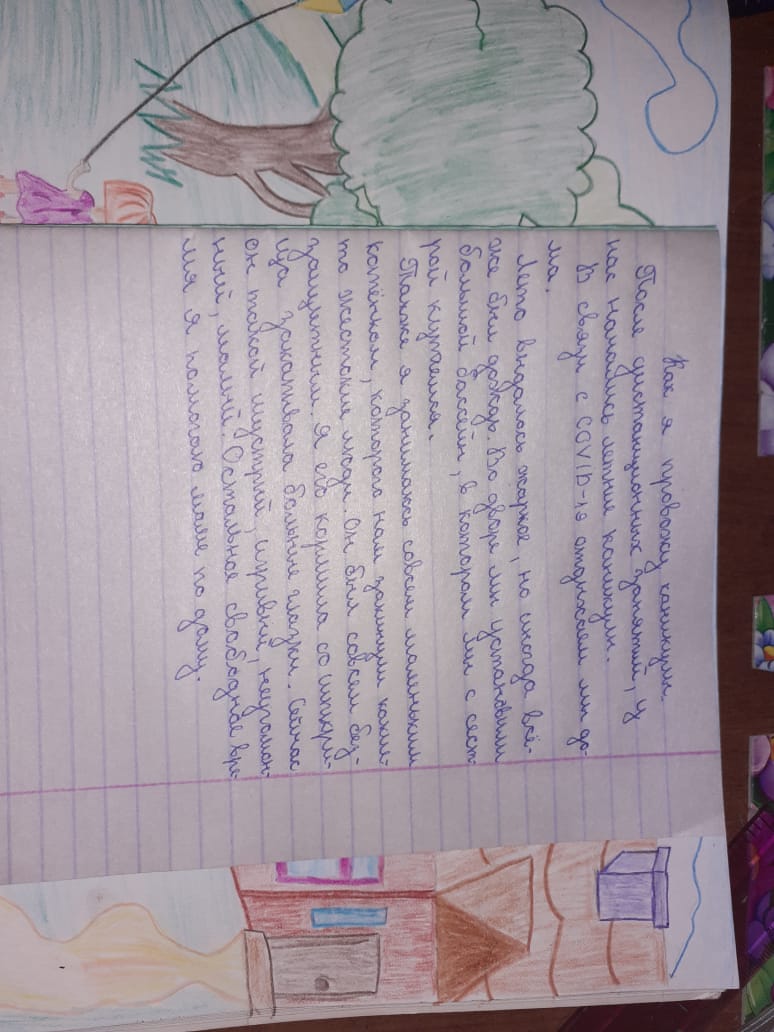 Как я провожу каникулы.
После дистанционных занятий, у
нас начались летние каникулы.
В связи с COVID-19 отдыхаем мы до-
ма.
Лето выдалось жаркое, но иногда всё-
же был дождь. Во дворе мы установили
большой бассейн, в котором мы с сест-
рой купаемся.
Также я занимаюсь совсем маленьким
котёнком, которого нам закинули какие-
то жестокие люди. Он был совсем без-
защитным. Я его кормила со шприца,
закапывала больные глазки. Сейчас
он такой шустрый, игривый, неугомон-
ный, милый. Остальное свободное вре-
мя я помогаю маме по дому.